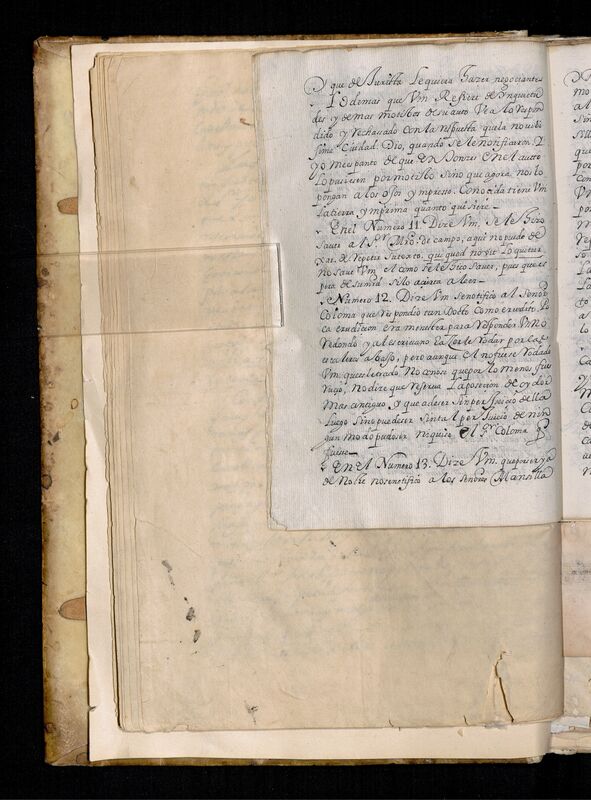 Y que de Jurista Le quiera Hazer negociante
Lo demas que Vm Refiere de Ynquietu
des y demas motibos de su auto Vea lo respon
dido y rechazado con la respuesta que la nobili
sima Ciudad Dio, quando se le notificaron. Y
yo me espanto de que en Donres en el auto
Lo pusiesen por motibo sino que agora nos lo
pongan a los ojos ympresso. Conozida tiene Vm
La tierra, ymprima quanto quisiere
En el Numero 11. Dize Vm. se le hizo
Saver al Sr. Mro. de campo, aqui no puedo de
xar de repetir su texto. que quod no vit Lo que ter
no Save Vm. el como se le hizo Saver, pues que es
pera de su mrd si lo acierta a leer
Numero 12. Dize Vm se notifico al Señor
Coloma que respondio tan Docto como erudito, Po
ca erudicion era menester para responder Vm. O
redondo y al escrivano Echarle a rodar por las
escaleras abajo, pero aunque el no fuese Rodado
Vm. que es letrado, No conose que por lo menos fue
rugo, No dize que reserva La posecion de oydor
mas antiguo, y que a de ser sin perjuicio de ella
Luego sino puede ser sin tal perjuicio de nin
gun modo pudo ser ni quiso el Sr. Coloma q
fuese
En el Numero 13. Dize Vm. que por ser ya
de noche no se notifico a los señores Mansilla